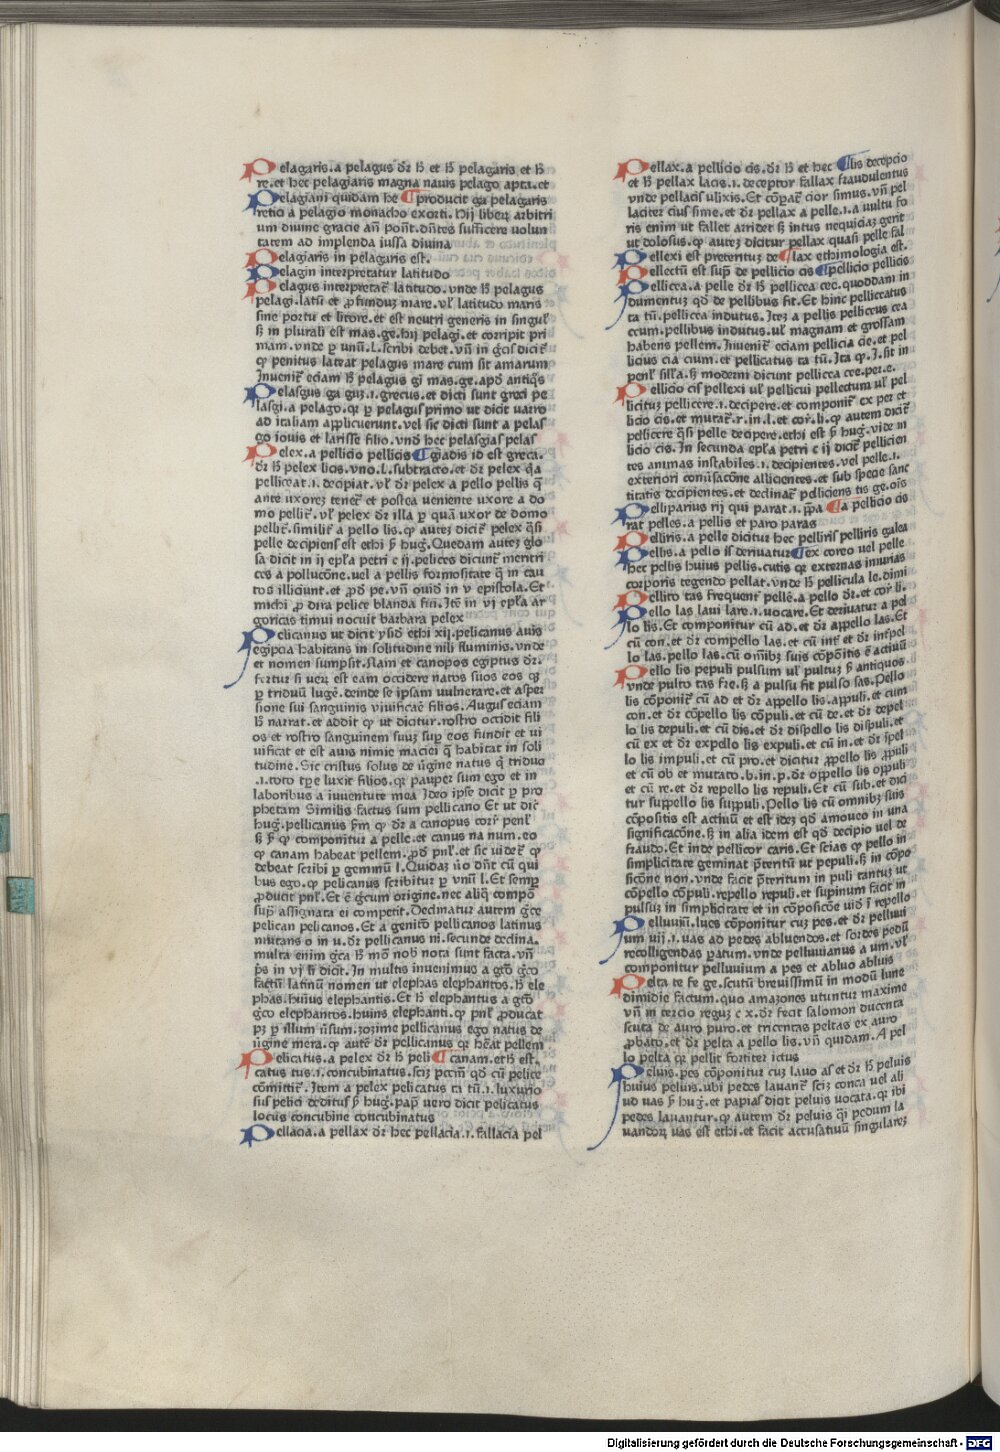 Pelagaris.a pelagus dr̄ h̄ et h̄ pelagaris et h̄
re.et hec pelagiaris magna nauis pelago apta.et
Pelagiani quidam he ¶ producit ga pelagaris
retici a pelagio monacho exorti. Hij liberȝ arbitri
um diuine gracie an̄ pon̄t.dn̄tes sufficere volun
tatem ad implenda iussa diuina
Pelagiaris in pelagaris est.
Pelagin interpretatur latitudo
Pelagus interpretat᷒ latitudo.vnde h̄ pelagus
pelagi.latū et ꝓfunduȝ mare.vl᷒ latitudo maris
sine portu et litore.et est neutri generis in singul᷒
sȝ in plurali est mas.ge.hij pelagi.et corripit pri
mam.vnde ꝑ vnū.l.scribi debet.vn̄ in gc̄is dicit᷒
ꝙ penitus lateat pelagus mare cum sit amarum
Inuenit᷒ eciam h̄ pelagus gi mas.ge.apd antiq̄s
Pelasgus ga guȝ.i.grecus.et dicti sunt greci pe
lasgi.a pelago.qꝛ ꝑ pelagus primo ut dicit varro
ad italiam applicuerunt.vel sic dicti sunt a pelas
go iouis et larisse filio.vnd̄ hec pelasgias pelas
Pelex.a pellicio pellicis ¶ giadis id est greca.
dr̄ h̄ pelex licis.vno.l.subtracto.et dr̄ pelex q̄a
pelliceat.i.decipiat.vl᷒ dr̄ pelex a pello pellis q̄
ante uxoreȝ tenet᷒ et postea veniente uxore a do
mo pellit᷒.vl᷒ pelex dr̄ illa ꝑ quā uxor de domo
pellit᷒.similit᷒ a pello lis.qꝛ auteȝ dicit᷒ pelex q̄si
pelle decipiens est ethi ẜ hug᷒.Quedam auteȝ glo
sa dicit in ij ep̄la petri c ij.pelices dicunt᷒ meretri
ces a pollucōne.uel a pellis formositate q̄ in cau
tos illiciunt.et ꝓd pe.vn̄ ouid in v epistola.Et
michi ꝓ dira pelice blanda fui.Itē in vj ep̄la ar
goricas timui nocuit barbara pelex
Pelicanus ut dicit ysid̄ ethi xij.pelicanus auis
egipcia habitans in solitudine nili fluminis.vnde
et nomen sumpsit.Nam et canopos egiptus dr̄.
fertur si uerȝ est eam occidere natos suos eos qꝫ
ꝑ triduū lugē.deinde se ipsam vulnerare.et asper
sione sui sanguinis viuificar᷒ filios.Augus eciam
h̄ narrat.et addit ꝙ ut dicitur.rostro occidit fili
os et rostro sanguinem suuȝ suꝑ eos fundit et ui
uificat et est auis nimie maciei q̄ habitat in soli
tudine.Sic cristus solus de ūgine natus q̄ triduo
.i.toto tp̄e luxit filios.qꝛ pauper sum ego et in
laboribus a iuuentute mea Ideo ipse dicit ꝑ pro
phetam Similis factus sum pellicano Et ut dic̄
hug᷒.pellicanus ẜm ꝙ dr̄ a canopus corr᷒ penl᷒
sȝ ẜ ꝙ componitur a pelle.et canus na num.eo
ꝙ canam habeat pellem.ꝓd̄ pnl᷒.et sic uidet᷒ ꝙ
debeat scribi ꝑ geminū l.Quidaȝ ūo dn̄t cū qui
bus ego.ꝙ pelicanus scribitur ꝑ vnū l.Et semꝑ
ꝓducit pnl᷒.Et ē gc̄um origine.nec aliq̄ compō
sup᷒ assignata ei competit.Declinatur autem gc̄e
pelican pelicanos.Et a genitō pellicanos latinus
mutans o in u.dr̄ pellicanus ni.secunde declina.
multa enim gc̄a h̄ mō nob̄ nota sunt facta.vn̄
p̄s in vj li dicit.In multis inuenimus a gtō gc̄o
factū latinū nomen ut elephas elephantos.h̄ ele
phas.huius elephantis.Et h̄ elephantus a gtō
gc̄o elephantos.huius elephanti.ꝙ pnl᷒ ꝓducat
pȝ ꝑ illum ūsum.zozime pellicanus ego natus de
ūgine mera.qꝛ autē dr̄ pellicanus qꝛ heāt pellem
Pelicatus.a pelex dr̄ h̄ peli ¶ canam.eth̄ est.
catus tus.i.concubinatus.sciȝ pctm̄ qd̄ cū pelice
cōmittit᷒.Item a pelex pelicatus ta tū.i.luxurio
sus pelici deditus ẜ hug.pap᷒ vero dicit pelicatus
locus concubine concubinatus
Pellacia.a pellax dr̄ hec pellacia.i.fallacia pel
Pellax.a pellicio cis.dr̄ h̄ et hec ¶ lis decepcio
et h̄ pellax lacis.i.deceptor fallax fraudulentus
vnde pellacis ulixis.Et cōparat᷒ cior simus.vn̄ pel
laciter cius sime.et dr̄ pellax a pelle.i.a vultu fo
ris enim ut fallet arridet sȝ intus nequiciaȝ gerit
ut dolosus.qꝛ auteȝ dicitur pellax quasi pelle fal
Pellexi est preteritus de ¶ lax ethimologia est.
Pellectū est sup̄ de pellicio cis ¶ pellicio pellicis
Pellicea.a pelle dr̄ h̄ pellicea cee.quoddam in
dumentuȝ qd̄ de pellibus fit.Et hinc pelliceatus
ta tū.pellicea indutus.Iteȝ a pellis pelliceus cea
ceum.pellibus indutus.ul᷒ magnam et grossam
habens pellem.Inuenit᷒ eciam pellicia cie.et pel
licius cia cium.et pellicatus ta tū.Ita ꝙ.I.sit in
penl᷒ sill᷒a.sȝ moderni dicunt pellicea cee.per.e.
Pellicio cis pellexi ul᷒ pellicui pellectum ul᷒ pel
licituȝ pellicere.i.decipere.et componit᷒ ex per et
licio cis.et mutat᷒.r.in.l.et cor᷒.li.ꝙ autem dicit᷒
pellicere q̄si pelle decipere.ethi est ẜ hug᷒.vide in
licio cis.In secunda ep̄la petri c ij dicit᷒ pellicien
tes animas instabiles.i.decipientes.vel pelle.i.
exteriori conūsacōne allicientes.et sub specie sanc
titatis decipientes.et declinat᷒ pelliciens tis ge.oīs
Pelliparius rij qui parat.i.p̄pa ¶ a pellicio cis
rat pelles.a pellis et paro paras
Pelliris.a pelle dicitur hec pelliris pelliris galea
Pellis.a pello is deriuatur ¶ ex coreo uel pelle
hec pellis huius pellis.cutis qꝛ externas iniurias
corporis tegendo pellat.vnde h̄ pellicula le.dimi
Pellito tas frequent᷒ pellē.a pello.dr̄.et cor᷒ li.
Pello las laui lare.i.uocare.Et deriuatur a pel
lo lis.Et componitur cū ad.et dr̄ appello las.Et
cū con.et dr̄ compello las.et cū int᷒ et dr̄ int᷒pel
lo las.pello las.cū om̄ibȝ suis cōpōitis ē actiuū
Pello lis pepuli pulsum ul᷒ pultuȝ ẜ antiquos.
vnde pulto tas fre.sȝ a pulsu fit pulso sas.Pello
lis cōponit᷒ cū ad et dr̄ appello lis.appuli.et cum
con.et dr̄ cōpello lis cōpuli.et cū de.et dr̄ depel
lo lis depuli.et cū dis.et dr̄ dispello lis dispuli.et
cū ex et dr̄ expello lis expuli.et cū in.et dr̄ īpel
lo lis impuli.et cū pro.et dicitur ꝓpello lis ꝓpuli
et cū ob et mutato.b.in.p.dr̄ oppello lis oppuli
et cū re.et dr̄ repello lis repuli.Et cū sub.et dici
tur suppello lis suppuli.Pello lis cū omnibȝ suis
cōpositis est actiuū et est ideȝ qd̄ amoueo in una
significacōne.sȝ in alia idem est qd̄ decipio uel de
fraudo.Et inde pellicor caris.Et scias ꝙ pello in
simplicitate geminat p̄teritū ut pepuli.sȝ in cōpo
sicōne non.vnde facit p̄teritum in puli tantuȝ ut
cōpello cōpuli.repello repuli.et supinum facit in
pulsuȝ in simplicitate et in cōposicōne uid̄ ī repello
Pelluuiū.lues cōponitur cuȝ pes.et dr̄ pelluui
um uij.i.uas ad pedes abluendos.et sordes pedū
recolligendas ꝑatum.vnde pelluuianus a um.vl᷒
componitur pelluuium a pes et abluo abluis
Pelta te fe ge.scutū breuissimū in modū lune
dimidie factum.quo amazones utuntur maxime
vn̄ in tercio reguȝ c x.dr̄ fecit salomon ducenta
scuta de auro puro.et tricentas peltas ex auro
ꝓbato.et dr̄ pelta a pello lis.vn̄ quidam.A pel
lo pelta qꝛ pellit fortiter ictus
Peluis.pes cōponitur cuȝ lauo as et dr̄ h̄ peluis
huius peluis.ubi pedes lauant᷒ sciȝ conca uel ali
ud uas ẜ hug.et papias dicit peluis uocata.qꝛ ibi
pedes lauantur.qꝛ autem dr̄ peluis q̄i pedum la
uandorȝ uas est ethi.et facit accusatiuū singulareȝ
Digitalisierung gefördert durch die Deutsche Forschungsgemeinschaft - DFG